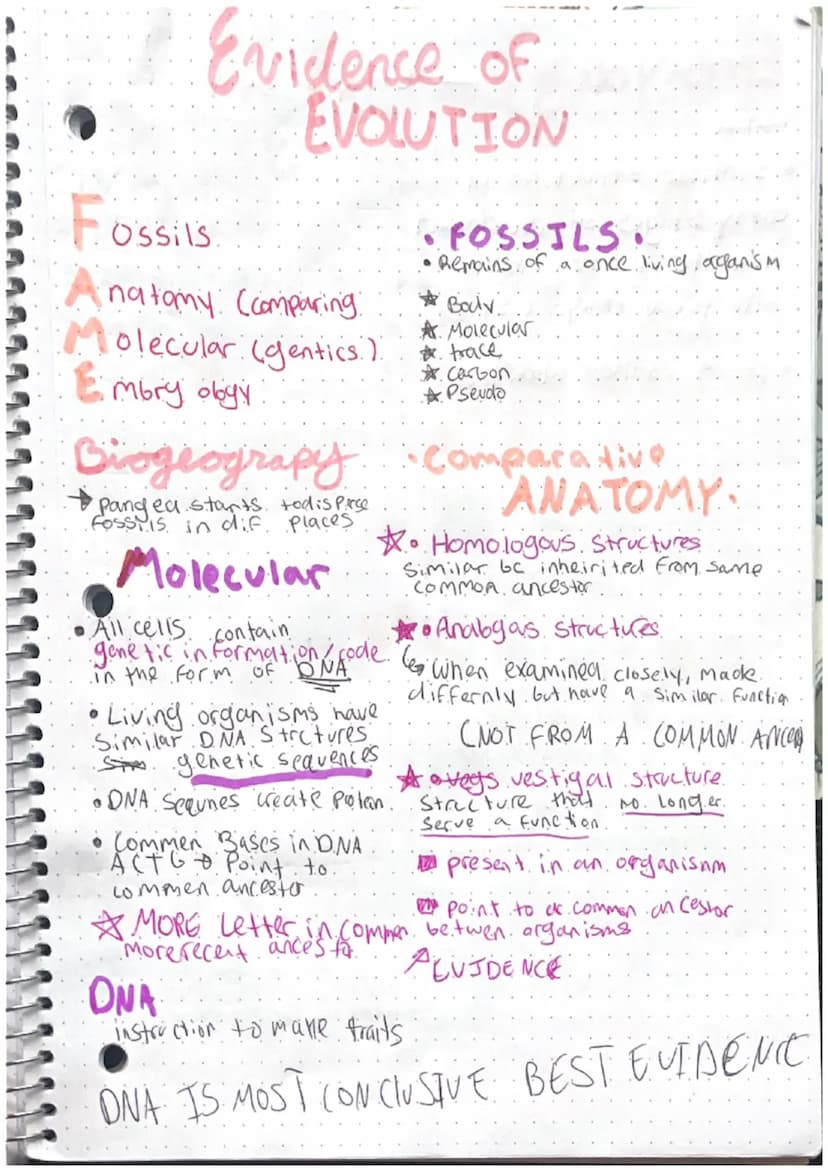 Evidence of
EVOLUTION
Fossils
Anatomy (comparing
Molecular (gentics)
Embry ology
• FOSSILS •
• Remains of a once living organism
Body
Molecular
trace
carbon
Pseudo
Biogeograpy
→ pangea starts to disperse
fossils in dif. places
Molecular
• All cells contain
genetic information/code
in the form of DNA
• Living organisms have
similar DNA Strctures
genetic sequences
• DNA sequnes create
• Commen Bases in DNA
ACTG → Point to
commen ancestor
☆ MORE Letter in common
more recent ancestor
DNA
instruction to make traits
• Comparative
ANATOMY.
☆• Homologous structures
similar bc inheirited from same
common ancestor
★• Analogas structures
↳ When examined closely, made
differnly but have a similar function
(NOT FROM A COMMON
★ vestigal structure
structure that no longer
serve a function
present in an organism
point to a common ancestor
betwen organisms
↗ EVIDENCE
DNA IS MOST CONCLUSIVE BEST EVIDENCE